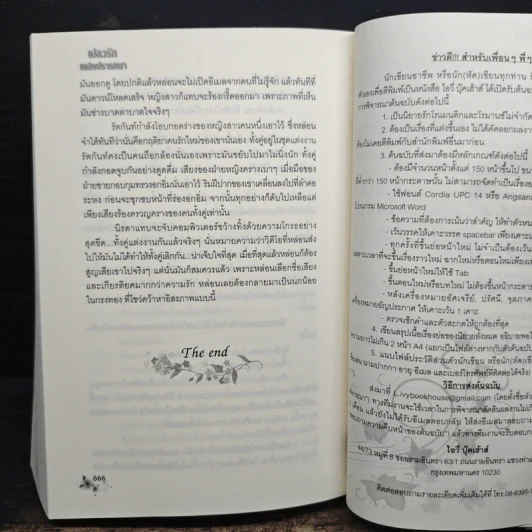 เปลวรัก
เพลิงปรารถนา
มันออกดู โดยปกติแล้วหล่อนจะไม่เปิดอีเมลจากคนที่ไม่รู้จัก แล้วทันทีที่
มันดาวน์โหลดเสร็จ หญิงสาวก็แทบจะร้องกรี๊ดออกมา เพราะภาพที่เห็น
มันช่างบาดตาบาดใจจริงๆ
รัตกันท์กำลังโอบกอดร่างของหญิงสาวคนหนึ่งเอาไว้ ซึ่งหล่อน
จำได้ทันทีว่านั่นคืออดีตคนรักใหม่ของเขานั่นเอง ทั้งคู่อยู่ในชุดแต่งงาน
รัตกันท์คงเป็นคนถือกล้องนั่นเองเพราะมันขยับไปมาไม่นิ่งนัก ทั้งคู่
กำลังกอดจูบกันอย่างดูดดื่ม เสียงของหญิงสาวครางเบาๆ เมื่อมือของ
ฝ่ายชายกอบกุมทรวงอกอิ่มนั่นเอาไว้ ริมฝีปากของเขาเคลื่อนลงไปที่ลำคอ
ระหง ก่อนจะซุกซบหน้าที่ร่องอกอิ่ม จากนั้นทุกอย่างก็ดับไปเหลือแค่
เพียงเสียงร้องครวญครางของคนทั้งคู่เท่านั้น
นิรดาแทบจะจับคอมพิวเตอร์ขว้างทิ้งด้วยความโกรธอย่าง
สุดขีด...ทั้งคู่แต่งงานกันแล้วจริงๆ นั่นหมายความว่าวิดีโอที่หล่อนส่ง
ไปให้มันไม่ได้ทำให้ทั้งคู่เลิกกัน...น่าเจ็บใจที่สุด เมื่อที่สุดแล้วหล่อนก็ต้อง
สูญเสียเขาไปจริงๆ แต่นั่นมันก็สมควรแล้ว เพราะหล่อนเลือกชื่อเสียง
และเกียรติยศมากกว่าความรัก หล่อนเลยต้องกลายมาเป็นนกน้อย
ในกรงทอง ที่ไขว่คว้าหาอิสรภาพแบบนี้
The end
666
ข่าวดี!!! สำหรับเพื่อนๆ พี่ๆ
นักเขียนอาชีพ หรือนัก(หัด)เขียนทุกท่าน
ตัวเองเพื่อตีพิมพ์เป็นหนังสือ ไอวี่ บุ๊คเฮ้าส์ ได้เปิดรับต้น
การพิจารณาต้นฉบับดังต่อไปนี้
1. เป็นนิยายรักโรแมนติกและโรมานซ์ไม่จำกัด
2. ต้องเป็นเรื่องที่แต่งขึ้นเอง ไม่ได้คัดลอกผลงาน
ต้องไม่เคยตีพิมพ์กับสำนักพิมพ์อื่นมาก่อน
3. ต้นฉบับที่ส่งมาต้องมีหลักเกณฑ์ดังต่อไปนี้
- ต้องมีจำนวนหน้าตั้งแต่ 150 หน้าขึ้นไป
ที่ต่ำกว่า 150 หน้ากระดาษนั้น ไม่สามารถจัดทำเป็นเรื่อง
- ใช้ฟอนต์ Cordia UPC 14 หรือ Angsana
โปรแกรม Microsoft Word
- ข้อความที่ต้องการเน้นว่าสำคัญ ให้ทำตัวหนา
- เว้นวรรคให้เคาะวรรค spacebar เพียงเคาะ
- ทุกครั้งที่ขึ้นย่อหน้าใหม่ ไม่จำเป็นต้องเว้น
- ขึ้นย่อหน้าใหม่ให้ใช้ Tab
- ขึ้นตอนใหม่หรือบทใหม่ ไม่ต้องขึ้นหน้ากระดาษ
- หลังเครื่องหมายอัศเจรีย์, ปรัศนี, จุลภาค
เครื่องหมายอัญประกาศ ให้เคาะเว้น 1 เคาะ
- ตรวจเช็กคำและตัวสะกดให้ถูกต้องที่สุด
4. เขียนสรุปเนื้อเรื่องย่อของนิยายทั้งหมด
ความยาวไม่เกิน 2 หน้า A4
วิธีการส่งต้นฉบับ
ไอวี่ บุ๊คเฮ้าส์
44/73 หมู่ที่ 8 ซอยรามอินทรา 63/1 ถนนรามอินทรา
กรุงเทพมหานคร 10230
ติดต่อสอบถามรายละเอียดเพิ่มเติมได้ที่ โทร.08-6395-